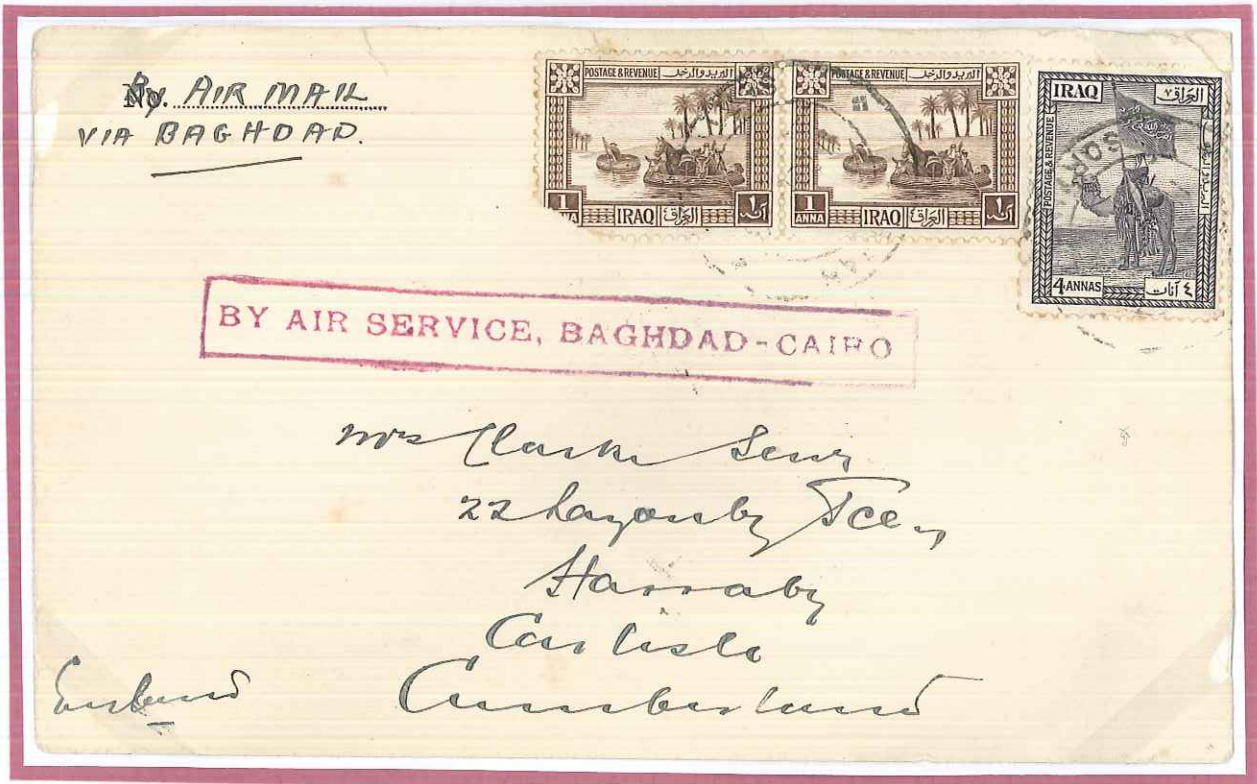 By. AIR MAIL
VIA BAGHDAD.
POSTAGE & REVENUE البريد والدخل
1 ANNA IRAQ العراق ١ آنه
POSTAGE & REVENUE البريد والدخل
1 ANNA IRAQ العراق ١ آنه
IRAQ العراق
POSTAGE & REVENUE
4 ANNAS ٤ آنات
BY AIR SERVICE, BAGHDAD-CAIRO
Mrs Clarke Senr
22 Lazonby Tce,
Harraby
Carlisle
Cumberland
England